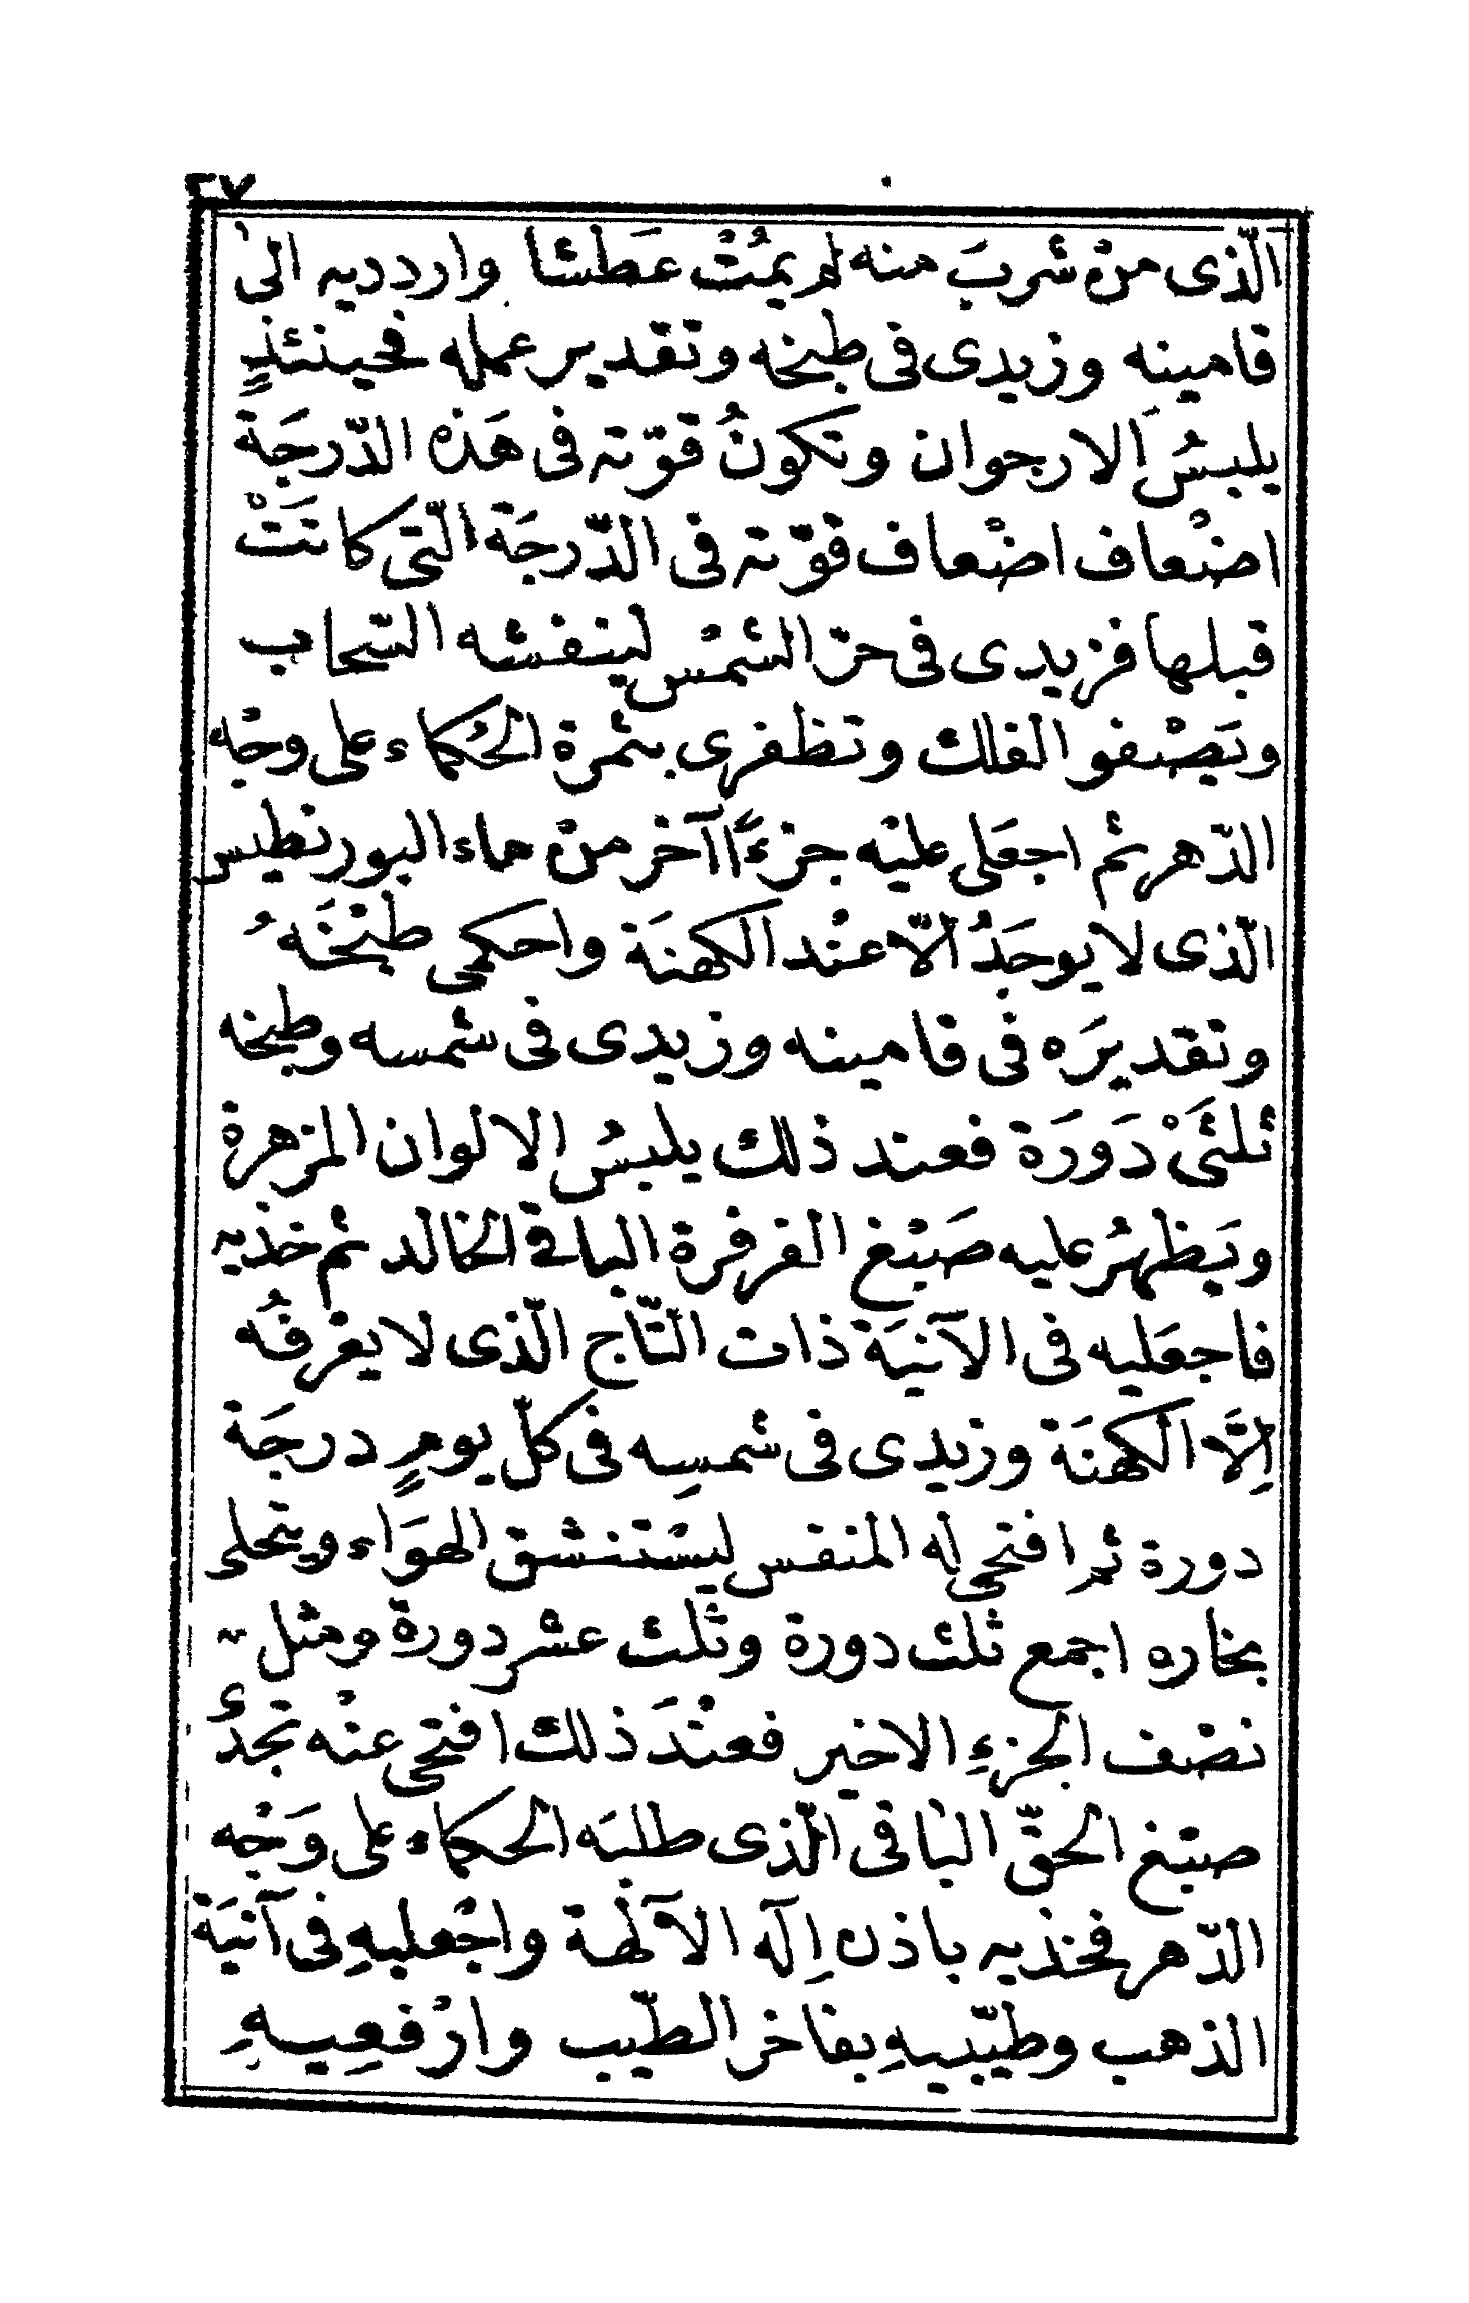 ٢٧
الّذى منْ شربَ منه لم يمُتْ عَطشا وارديه الى
قامينه وزيدى فى طبخه وتقدير عمله فحينئذٍ
يلبسُ الارجوان وتكونُ قوّته فى هَذه الدّرجَة
اضْعاف اضْعاف قوّته فى الدّرجَة التّى كانَتْ
قبلها فزيدى فى حرّ الشمْس لينفشه السّحاب
ويَصْفو الفلك وتظفرى بثمرة الحُكماء على وجْه
الدّهر ثم اجعَلى عليْه جزءًا آخر منْ ماء البورنطيس
الّذى لا يوجَدُ الّا عنْد الكهنَة واحكمى طبْخَهُ
وتقديرَه فى قامينه وزيدى فى شمسه وطبخه
ثلثَىْ دَورَة فعند ذلك يلبسُ الالوان المزهرة
ويَظهرُ عليه صَبْغ الفرفرة الباقى الخالد ثم خذيه
فاجعَليه فى الآنيَة ذات التّاج الّذى لا يعْرفُه
اِلَّا الكهنَة وزيدى فى شمسِه فى كلّ يومٍ درجَة
دورة ثم افتحى له المنفس ليسْتنشق الهوَاء ويتحلى
بخاره اجمع ثلث دورة وثلث عشر دورة ومثل
نصْف الجزءِ الاخير فعنْدَ ذلك افتحى عنْه تجدُ
صبْغ الحقّ الباقى الّذى طلبَه الحكماء على وَجْه
الدّهر فخذيه باذن اِلٓه الآلهة واجْعليهِ فى آنيَة
الذهب وطيّبيهِ بفاخر الطّيب وارْفعِيهِ